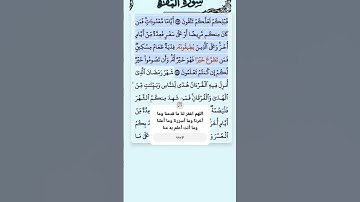 سورة البقرة
قبلكم لعلكم تتقون أياما معدودات فمن
كان منكم مريضا أو على سفر فعدة من أيام
أخر وعلى الذين يطيقونه فدية طعام مسكين
فمن تطوع خيرا فهو خير له وأن تصوموا خير
لكم إن كنتم تعلمون شهر رمضان الذي
أنزل فيه القرآن هدى للناس وبينات من
الهدى والفرقان فمن شهد منكم الشهر
فليصمه
اللهم اغفر لنا ما قدمنا وما
أخرنا وما أسررنا وما أعلنا
وما أنت أعلم به منا